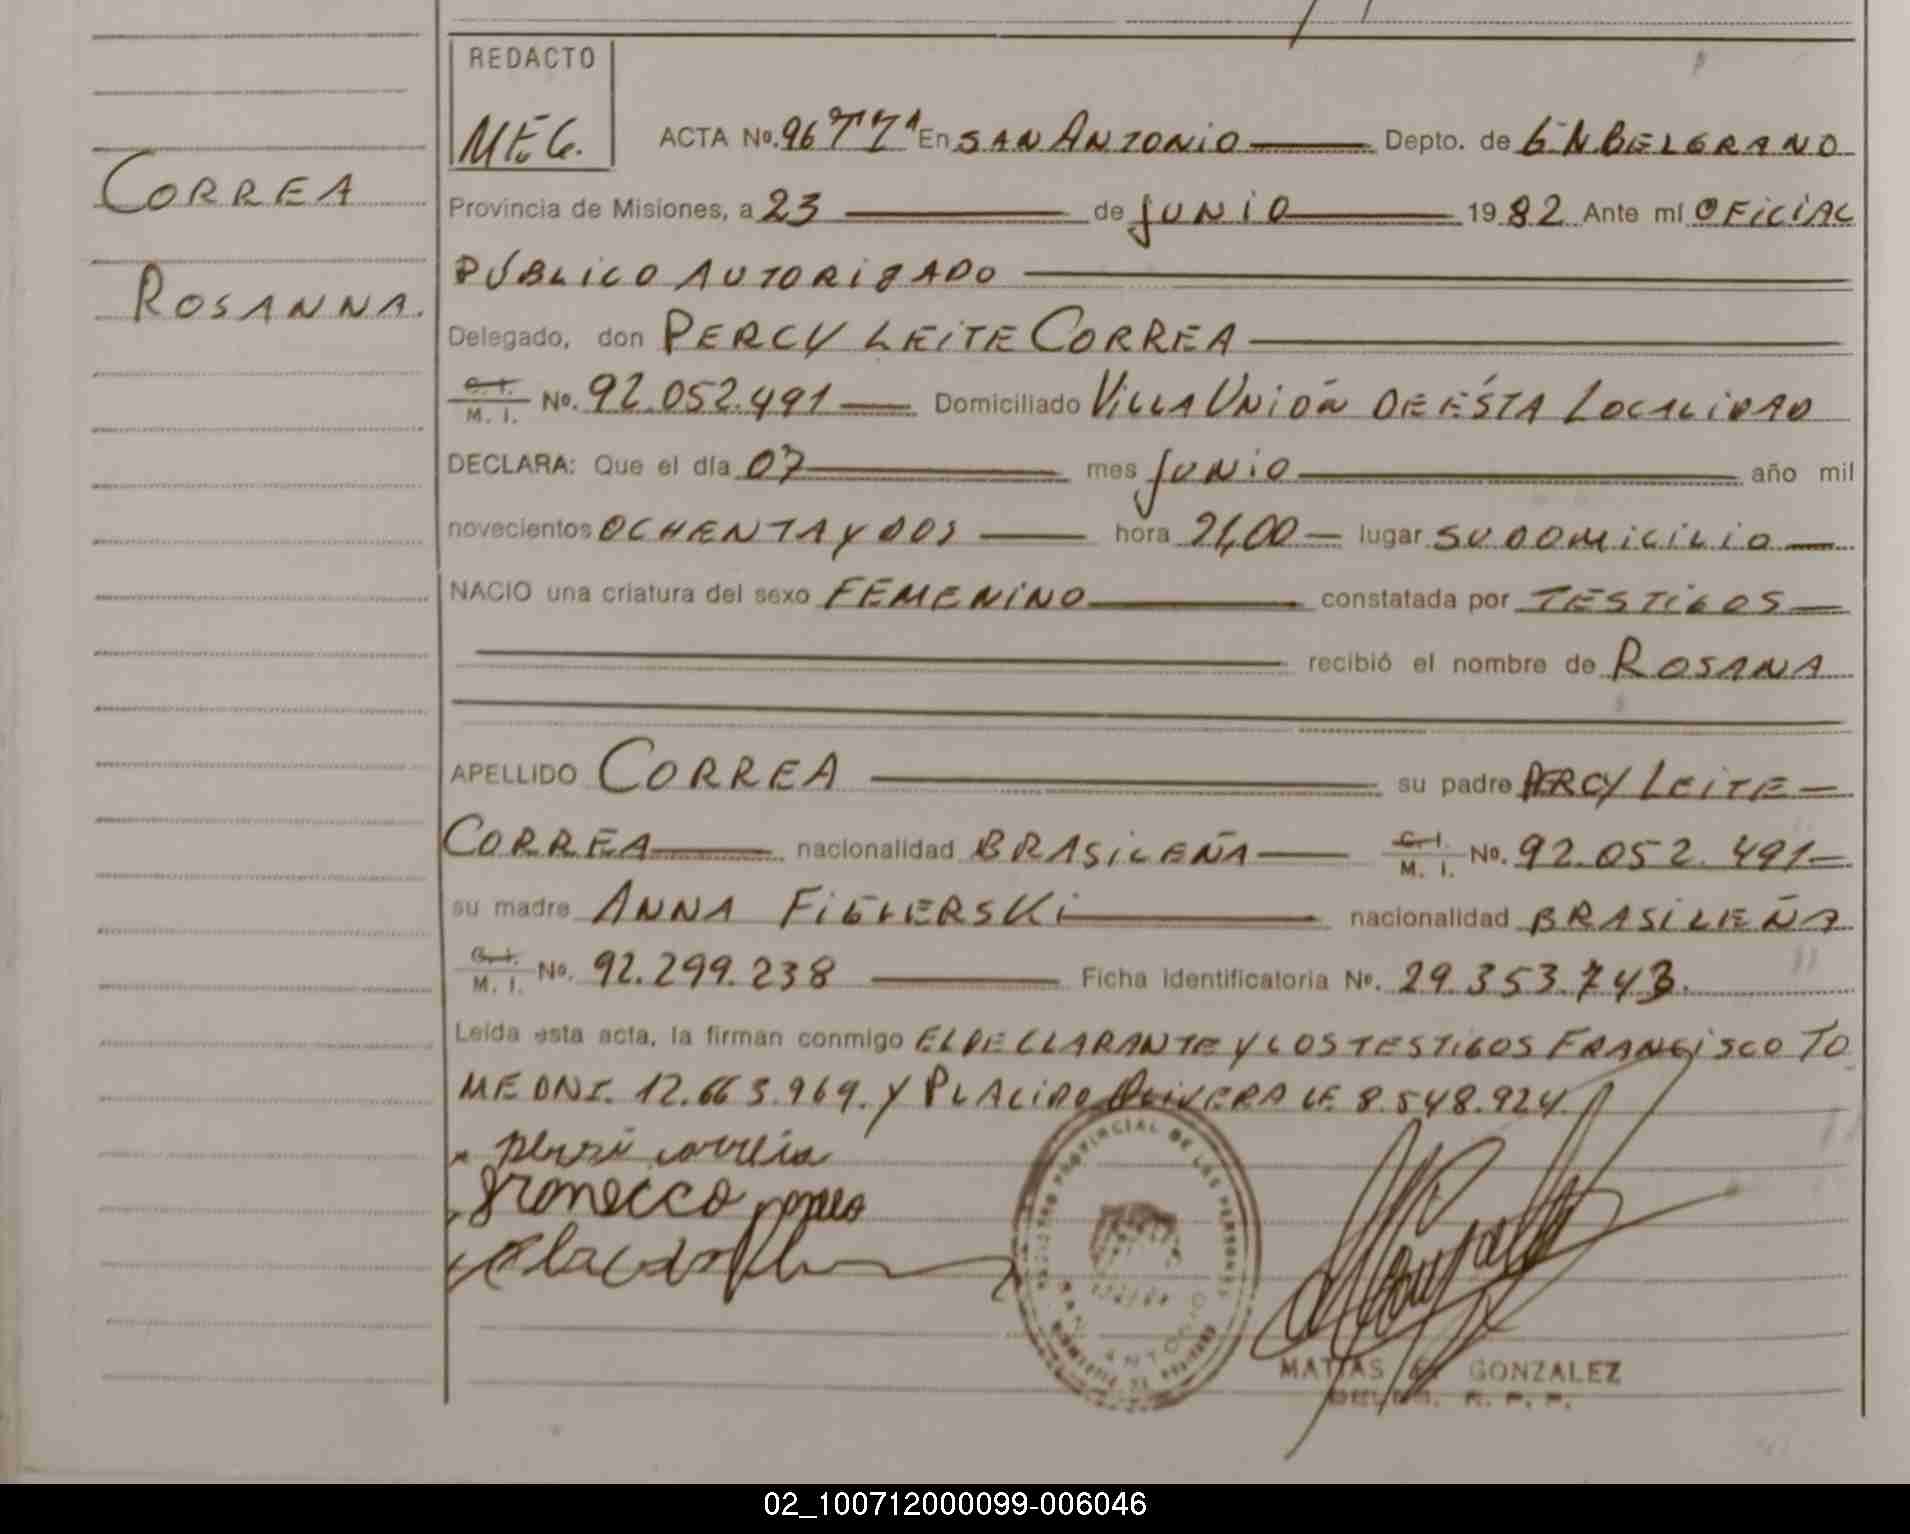 REDACTO
M.E.G.
CORREA
ROSANNA.
ACTA No. 96 TT 1ª En SAN ANTONIO Depto. de G.N.BELGRANO
Provincia de Misiones, a 23 de JUNIO 1982 Ante mí OFICIAL
PÚBLICO AUTORIZADO
Delegado, don PERCY LEITE CORREA
C. I. / M. I. No. 92.052.491 Domiciliado VILLA UNIÓN DE ÉSTA LOCALIDAD
DECLARA: Que el día 07 mes JUNIO año mil
novecientos OCHENTA Y DOS hora 21,00 lugar SU DOMICILIO
NACIO una criatura del sexo FEMENINO constatada por TESTIGOS
recibió el nombre de ROSANA
APELLIDO CORREA su padre PERCY LEITE
CORREA nacionalidad BRASILEÑA C. I. / M. I. No. 92.052.491
su madre ANNA FIGLERSKI nacionalidad BRASILEÑA
C. I. / M. I. No. 92.299.238 Ficha identificatoria No. 29.353.743.
Leída esta acta, la firman conmigo EL DECLARANTE Y LOS TESTIGOS FRANCISCO TO
ME DNI. 12.663.969. Y PLACIDO OLIVERA LE 8.548.924.
REGISTRO PROVINCIAL DE LAS PERSONAS
SAN ANTONIO
MATIAS GONZALEZ
R. P. P.
02_100712000099-006046